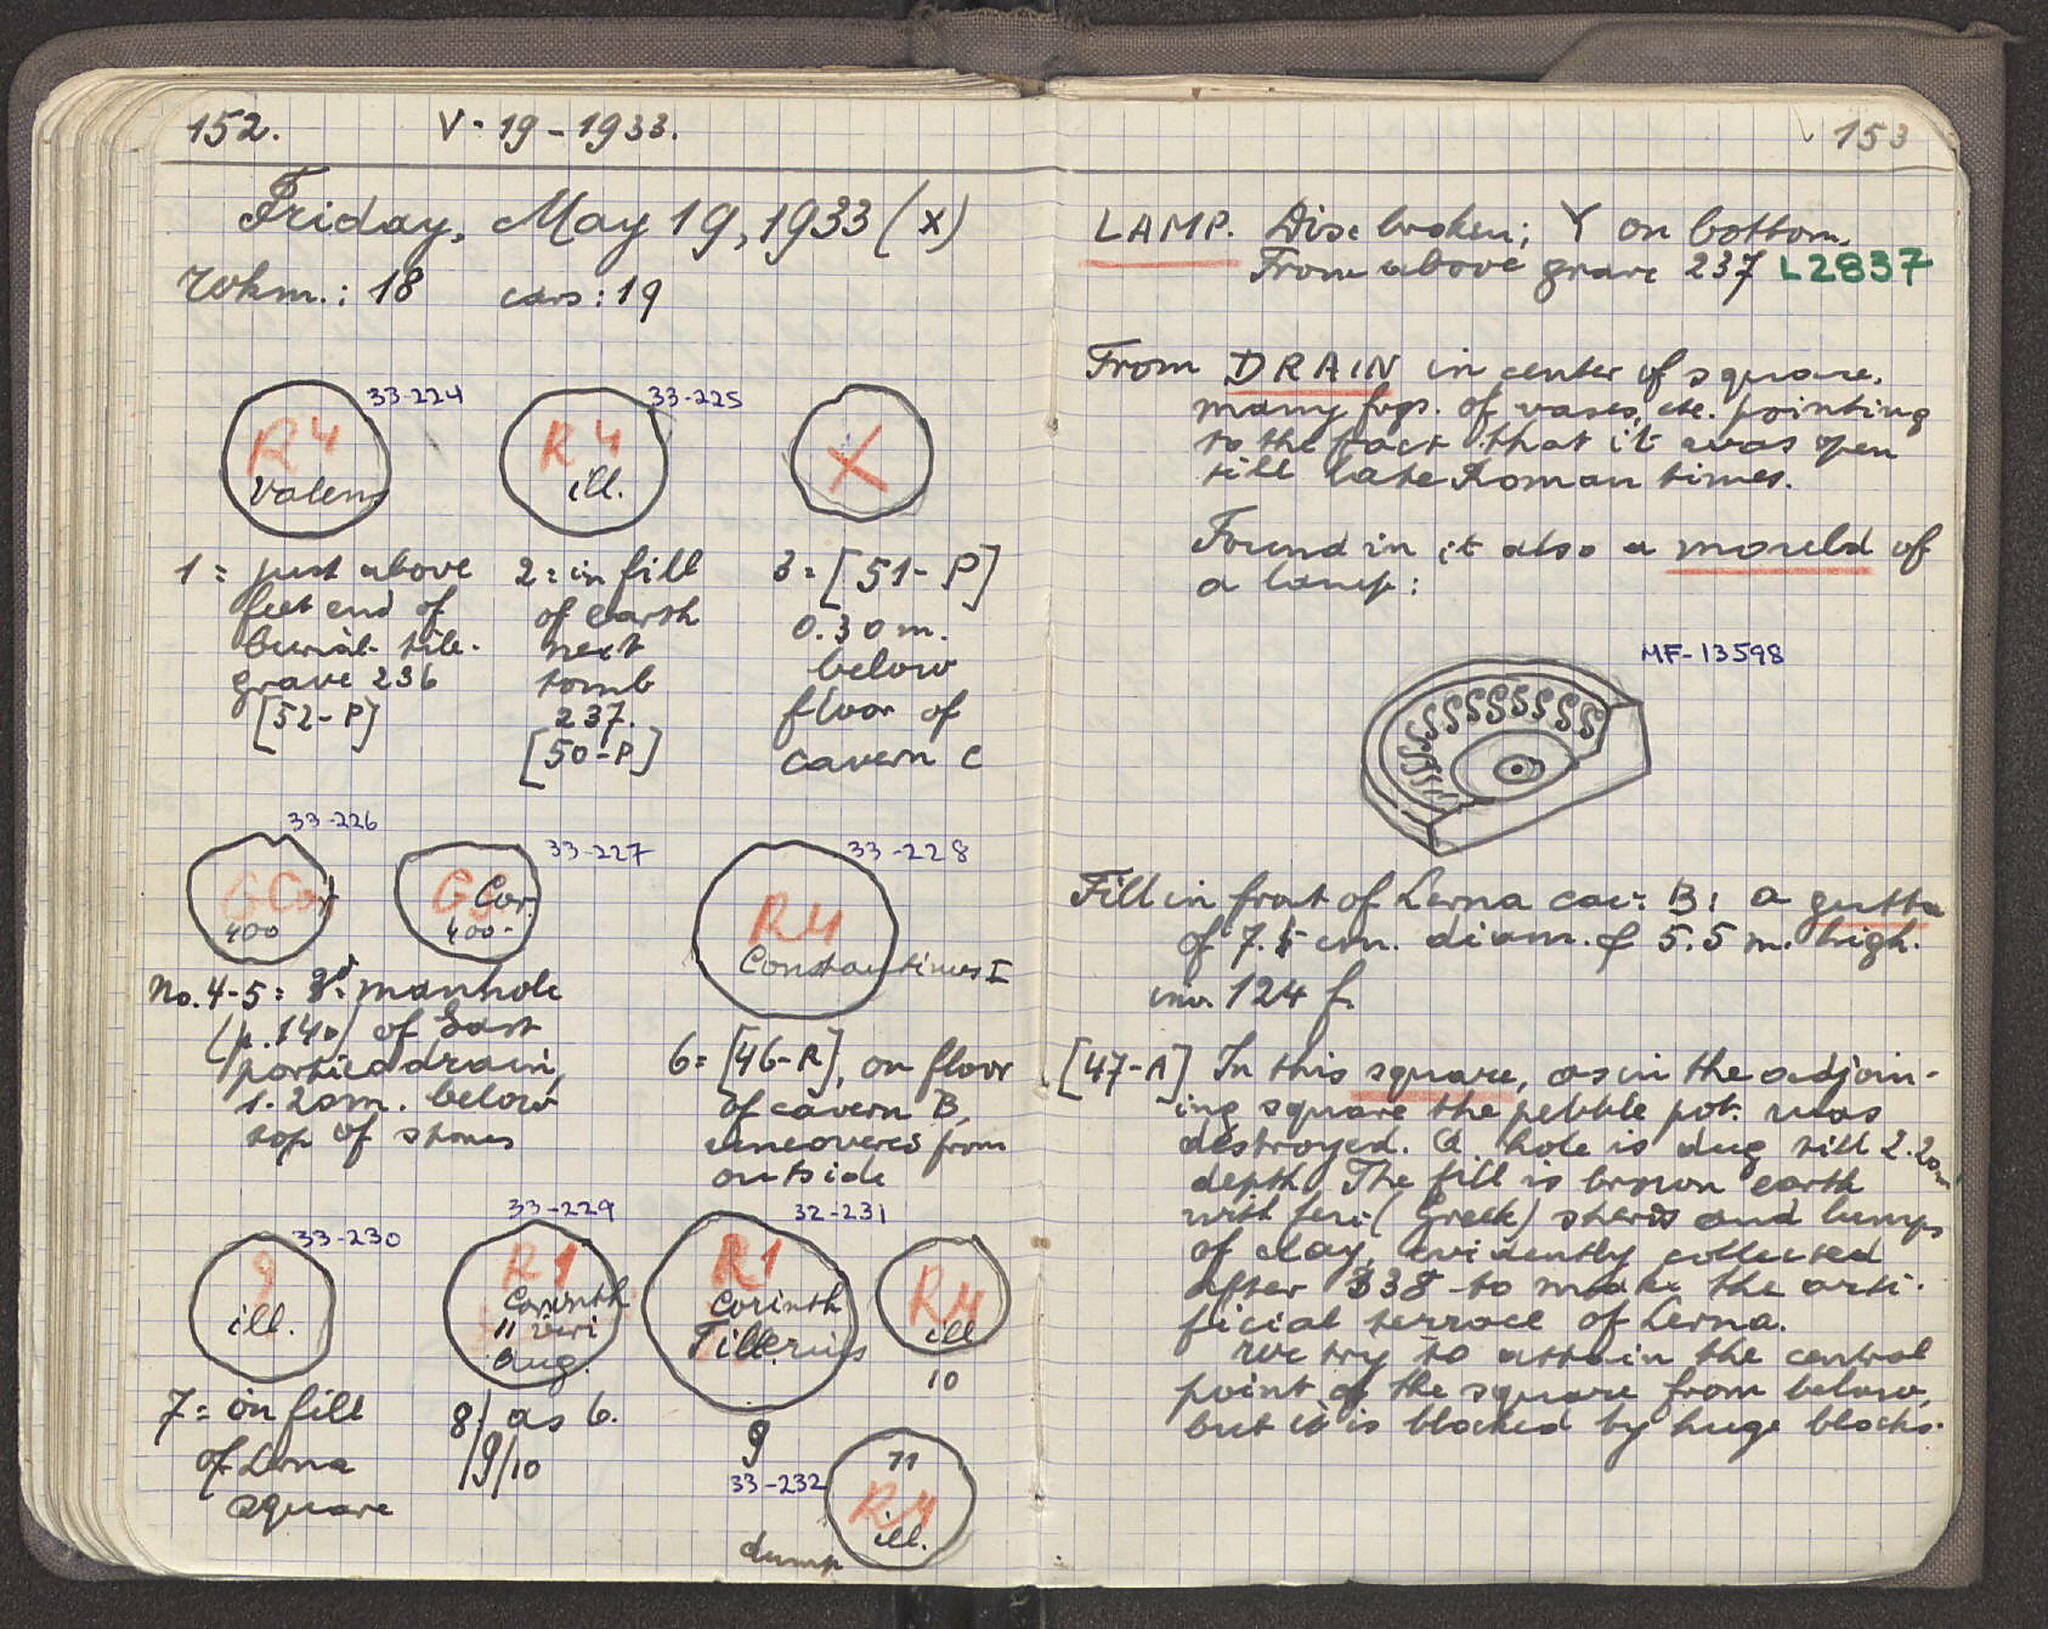 152. V-19-1933.
Friday, May 19, 1933 (x)
wkm.: 18 cars: 19
33-224 33-225
R4 R4 X
Valens ill.
1= just above
feet end of
burial tile-
grave 236
[52-P]
2= in fill
of earth
next
tomb
237.
[50-P]
3= [51-P]
0.30 m.
below
floor of
cavern C
33-226 33-227 33-228
G Cor
400
G Cor.
400-
R4
Constantinus I
No. 4-5= manhole
(p. 140) of East
portico drain,
1.20m. below
top of stones
6= [46-R], on floor
of cavern B,
uncovered from
outside
33-230 33-229 32-231
g
ill.
R1
Corinth
II viri
aug.
R1
Corinth
Tillerius
R4
ill
10
7= in fill
of Lerna
square
8/ as 6.
/9/10
9
33-232
11
R4
ill.
dump
153
LAMP. Disc broken; Y on bottom.
From above grave 237 L2837
From DRAIN in center of square,
many frgs. of vases, etc. pointing
to the fact that it was open
till late Roman times.
Found in it also a mould of
a lamp:
MF-13598
Fill in front of Lerna cav: B: a gutta
of 7.5 cm. diam. & 5.5 m. high.
inv. 124 f.
[47-A] In this square, as in the adjoin-
ing square the pebble pot. was
destroyed. A hole is dug till 2.20m
depth. The fill is brown earth
with few (Greek) sherds and lumps
of clay, evidently collected
after 338 to make the arti-
ficial terrace of Lerna.
We try to attain the central
point of the square from below,
but it is blocked by huge blocks.